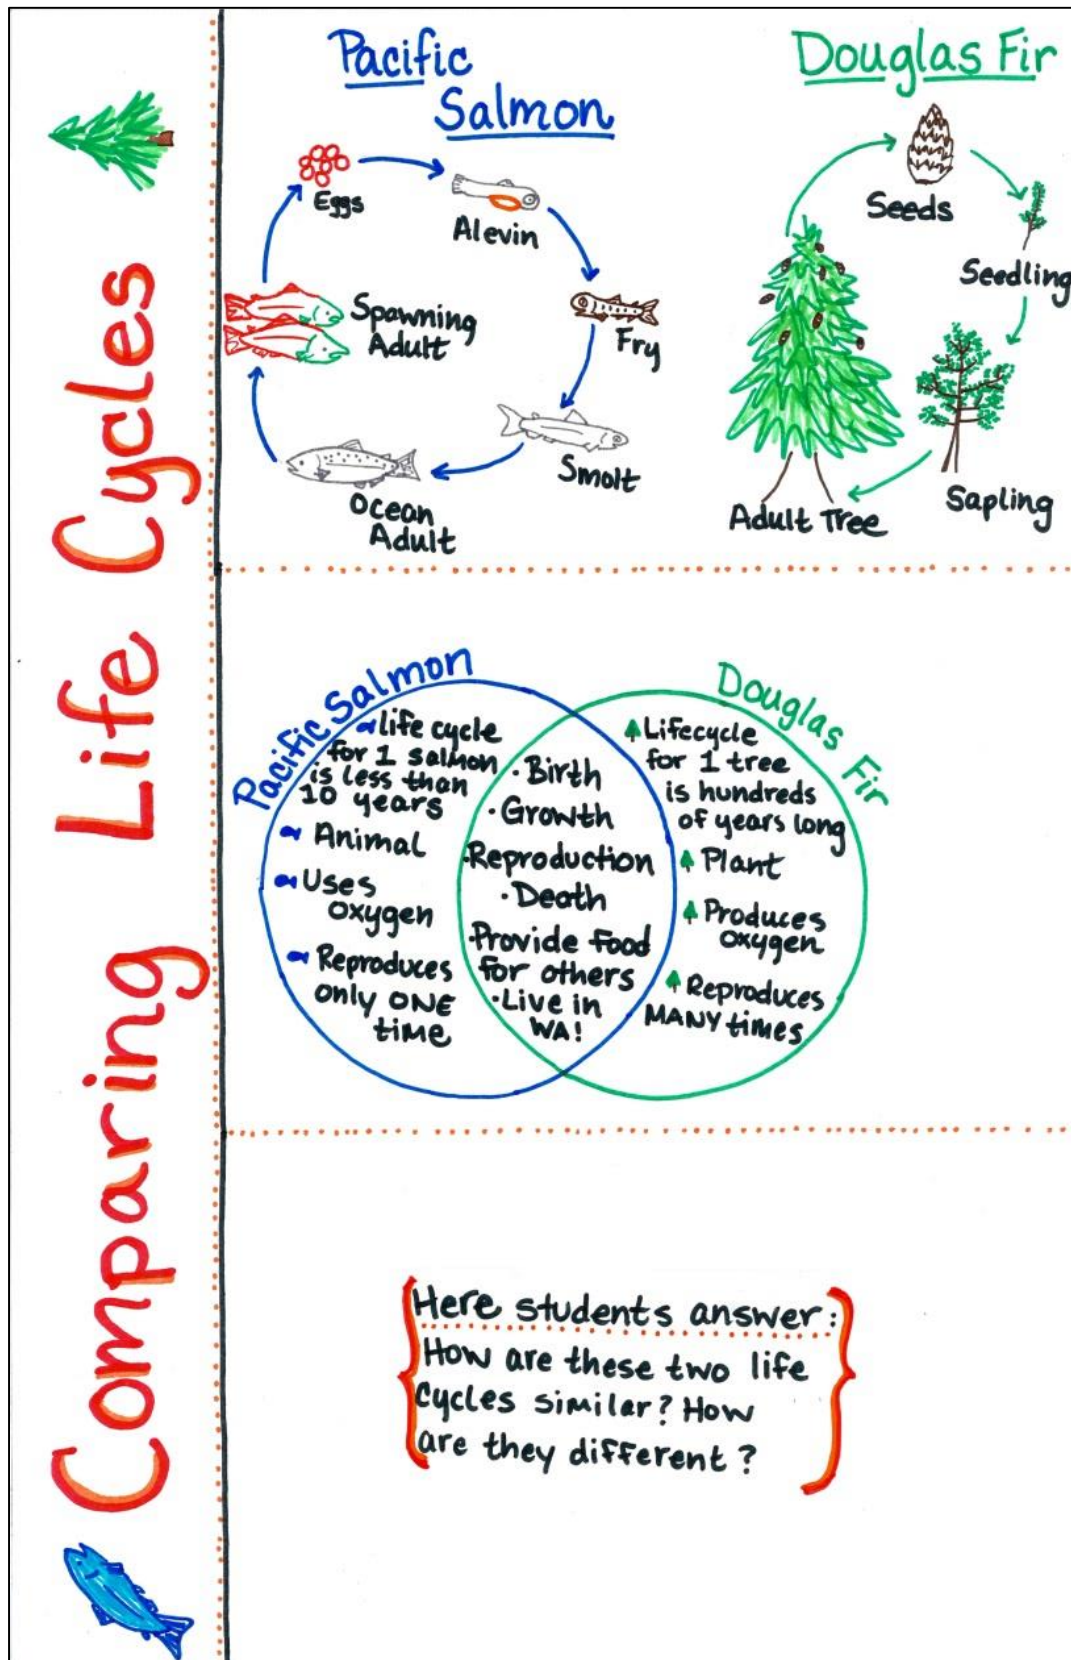 Comparing Life Cycles
Pacific
Salmon
Eggs
Alevin
Fry
Smolt
Ocean
Adult
Spawning
Adult
Douglas Fir
Seeds
Seedling
Sapling
Adult Tree
Pacific Salmon
life cycle
for 1 salmon
is less than
10 years
Animal
Uses
oxygen
Reproduces
only ONE
time
· Birth
· Growth
· Reproduction
· Death
· Provide food
for others
· Live in
WA!
Douglas Fir
Lifecycle
for 1 tree
is hundreds
of years long
Plant
Produces
oxygen
Reproduces
MANY times
Here students answer:
How are these two life
cycles similar? How
are they different?